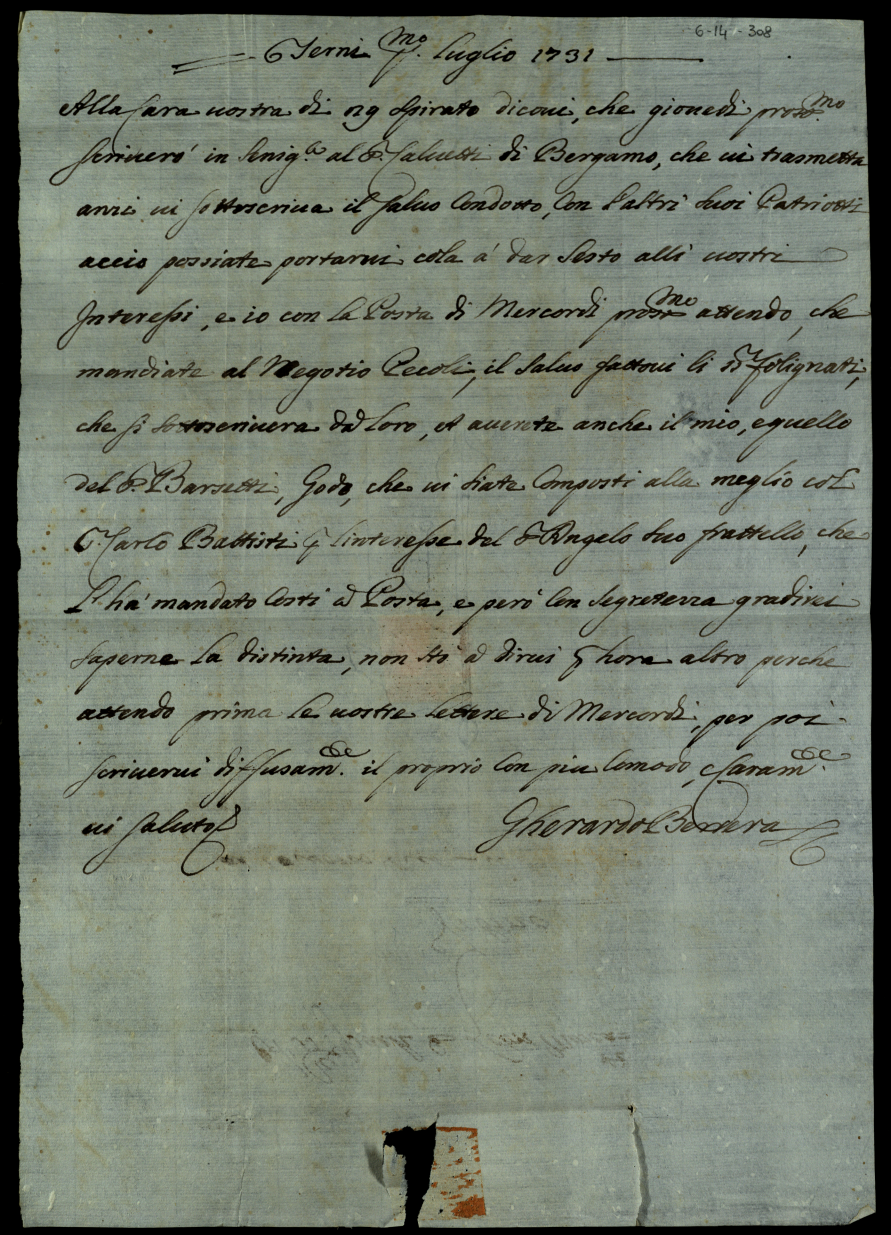 6-14-308
Terni P.mo Luglio 1731
Alla Cara vostra di 29 spirato dicovi, che giovedi pross.mo
scriverò in Senig.a al S.r Calvetti di Bergamo, che vi trasmetta
anzi vi sottoscriva il salvo Condotto, Con l'altri Suoi Patriotti
accio possiate portarvi cola á dar Sesto alli vostri
Interessi, e io con la Posta di Mercordi pross.mo attendo, che
mandiate al Negotio Pecoli, il Salvo fattovi li SS.ri folignati,
che si sottoscrivera da Loro, et averete anche il mio, e quello
del S.r Barsetti, Godo, che vi siate Composti alla meglio col
S.r Carlo Battisti p l'interesse del S.r Angelo Suo frattello, che
l'há mandato Costi a Posta, e peró Con Segretezza gradirei
saperne la distinta, non stó a dirvi p hora altro perche
attendo prima le vostre lettere di Mercordi, per poi
scrivervi diffusam.te il proprio Con piu Comodo, e Caram.te
vi saluto
Gherardo Berrera